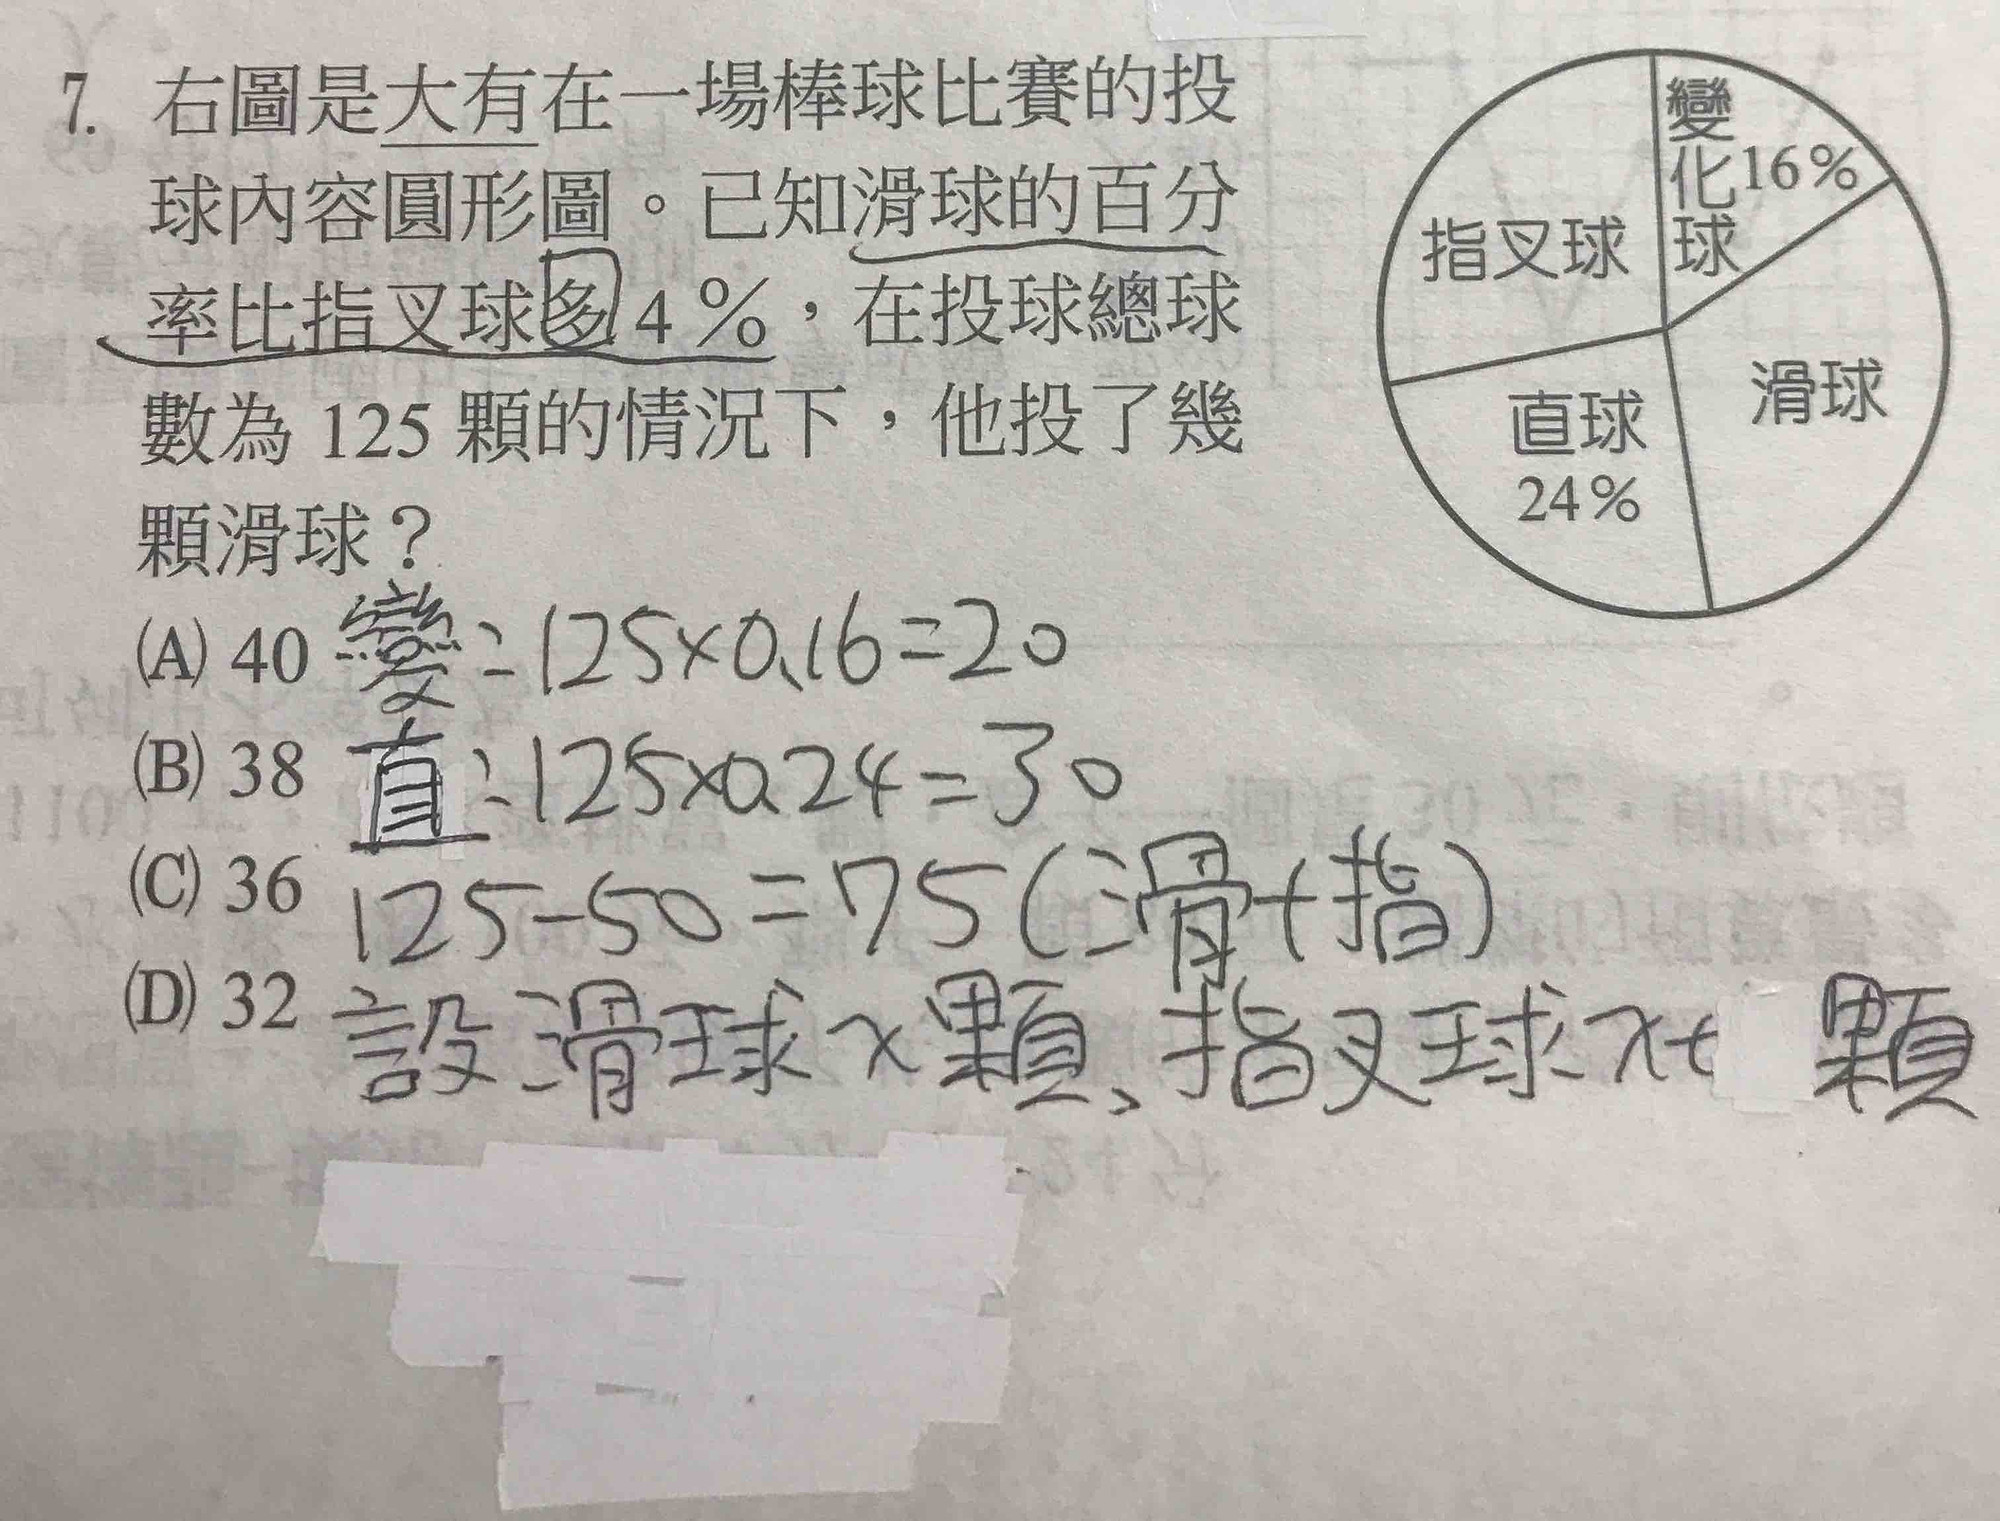 7. 右圖是大有在一場棒球比賽的投
球內容圓形圖。已知滑球的百分
率比指叉球多4%，在投球總球
數為125顆的情況下，他投了幾
顆滑球？
(A) 40
(B) 38
(C) 36
(D) 32
變化球 16%
指叉球
滑球
直球
24%
變：125×0.16=20
直：125×0.24=30
125-50=75(滑+指)
設滑球x顆、指叉球x+ 顆